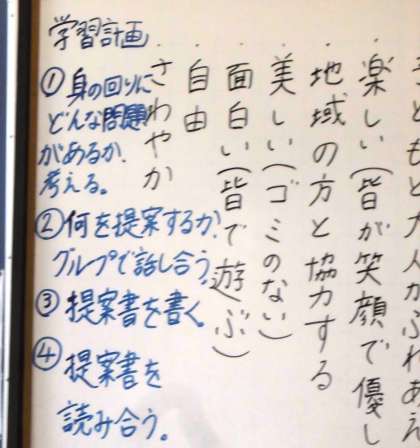 学習計画
①身の回りに
どんな問題
があるか、
考える。
②何を提案するか、
グループで話し合う。
③提案書を書く。
④提案書を
読み合う。
ふれあえ
・楽しい(皆が笑顔で優し
・地域の方と協力する
・美しい(ゴミのない)
・面白い(皆で遊ぶ)
・自由
・さわやか